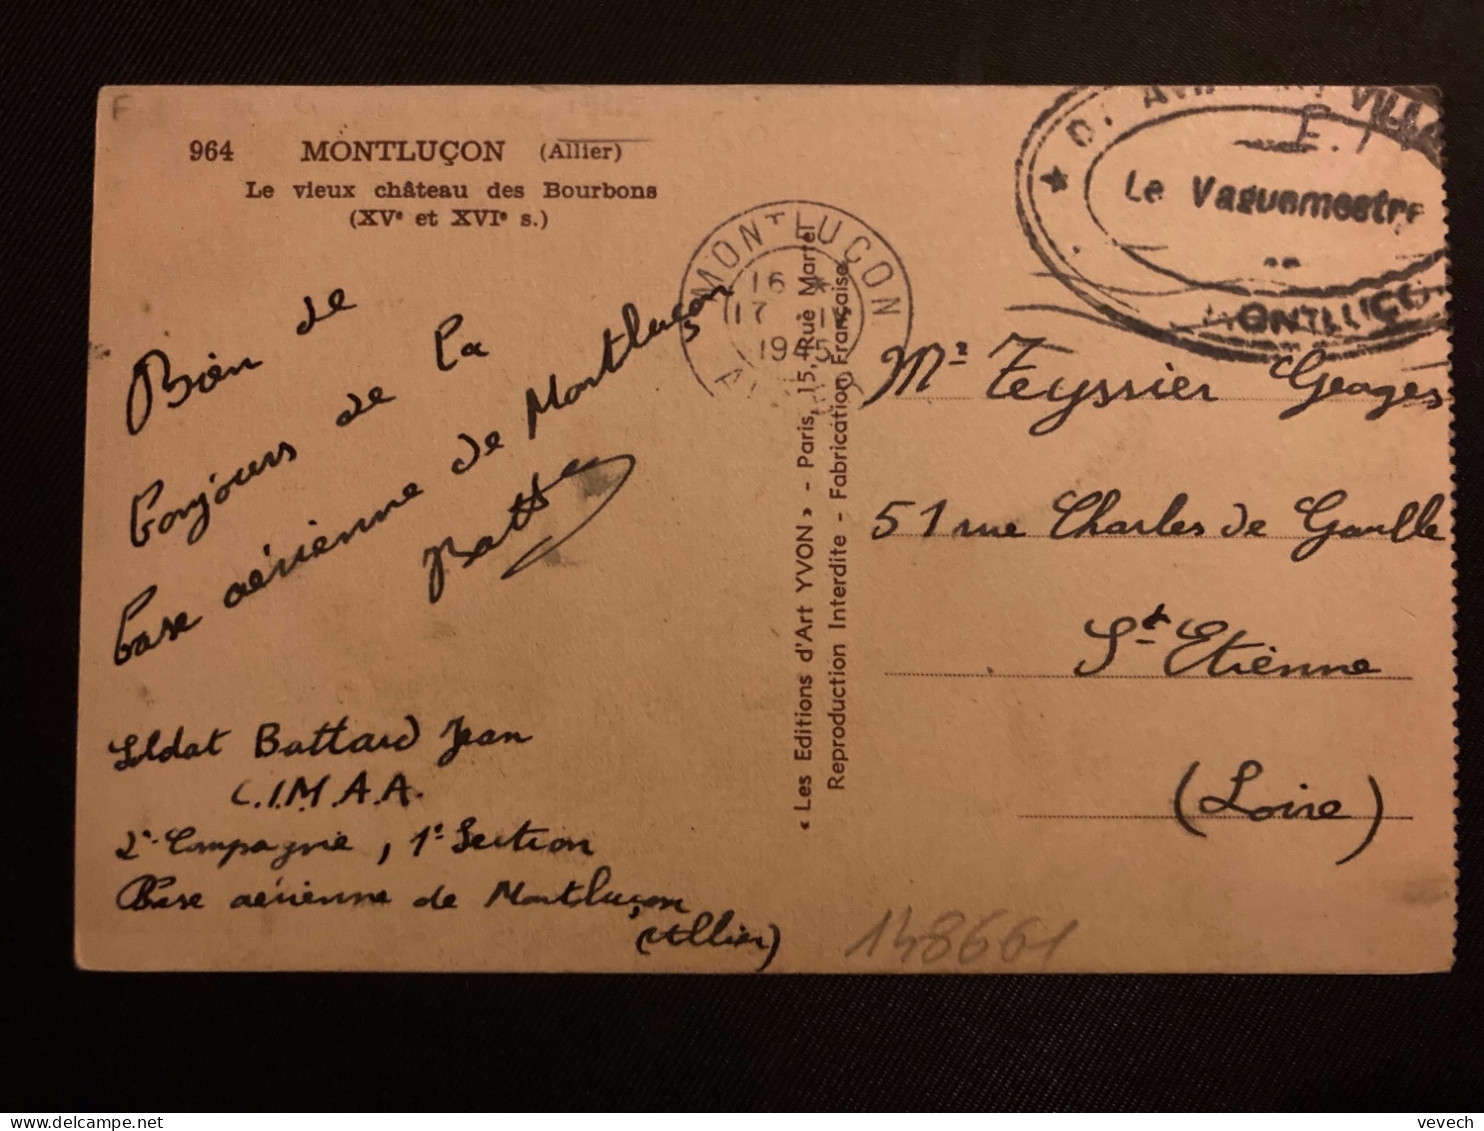 964 MONTLUÇON (Allier)
Le vieux château des Bourbons
(XVe et XVIe s.)
Bien de
bonjours de la
base aérienne de Montluçon
Soldat Battard Jean
C.I.M.A.A.
2e Compagnie, 1e Section
Base aérienne de Montluçon
(Allier)
MONTLUÇON
16
17
1945
« Les Editions d'Art YVON » - Paris, 15, Rue Martel
Reproduction Interdite - Fabrication Française
Le Vaguemestre
MONTLUÇON
Mr Teyssier Georges
51 rue Charles de Gaulle
St Etienne
(Loire)
148661
vevech